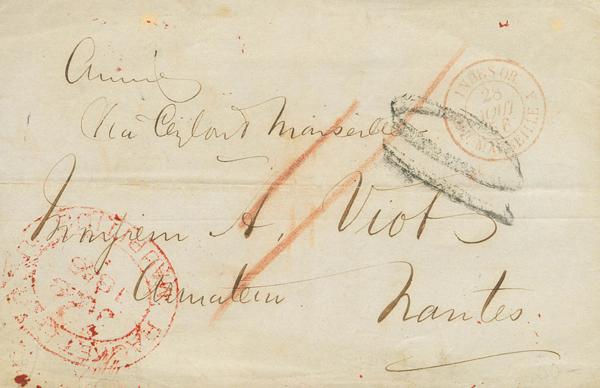 Annie
Via Ceylon & Marseille
Monsieur A. Viot
Armateur
Nantes.
INDES OR.
28
AOUT
MARSEILLE